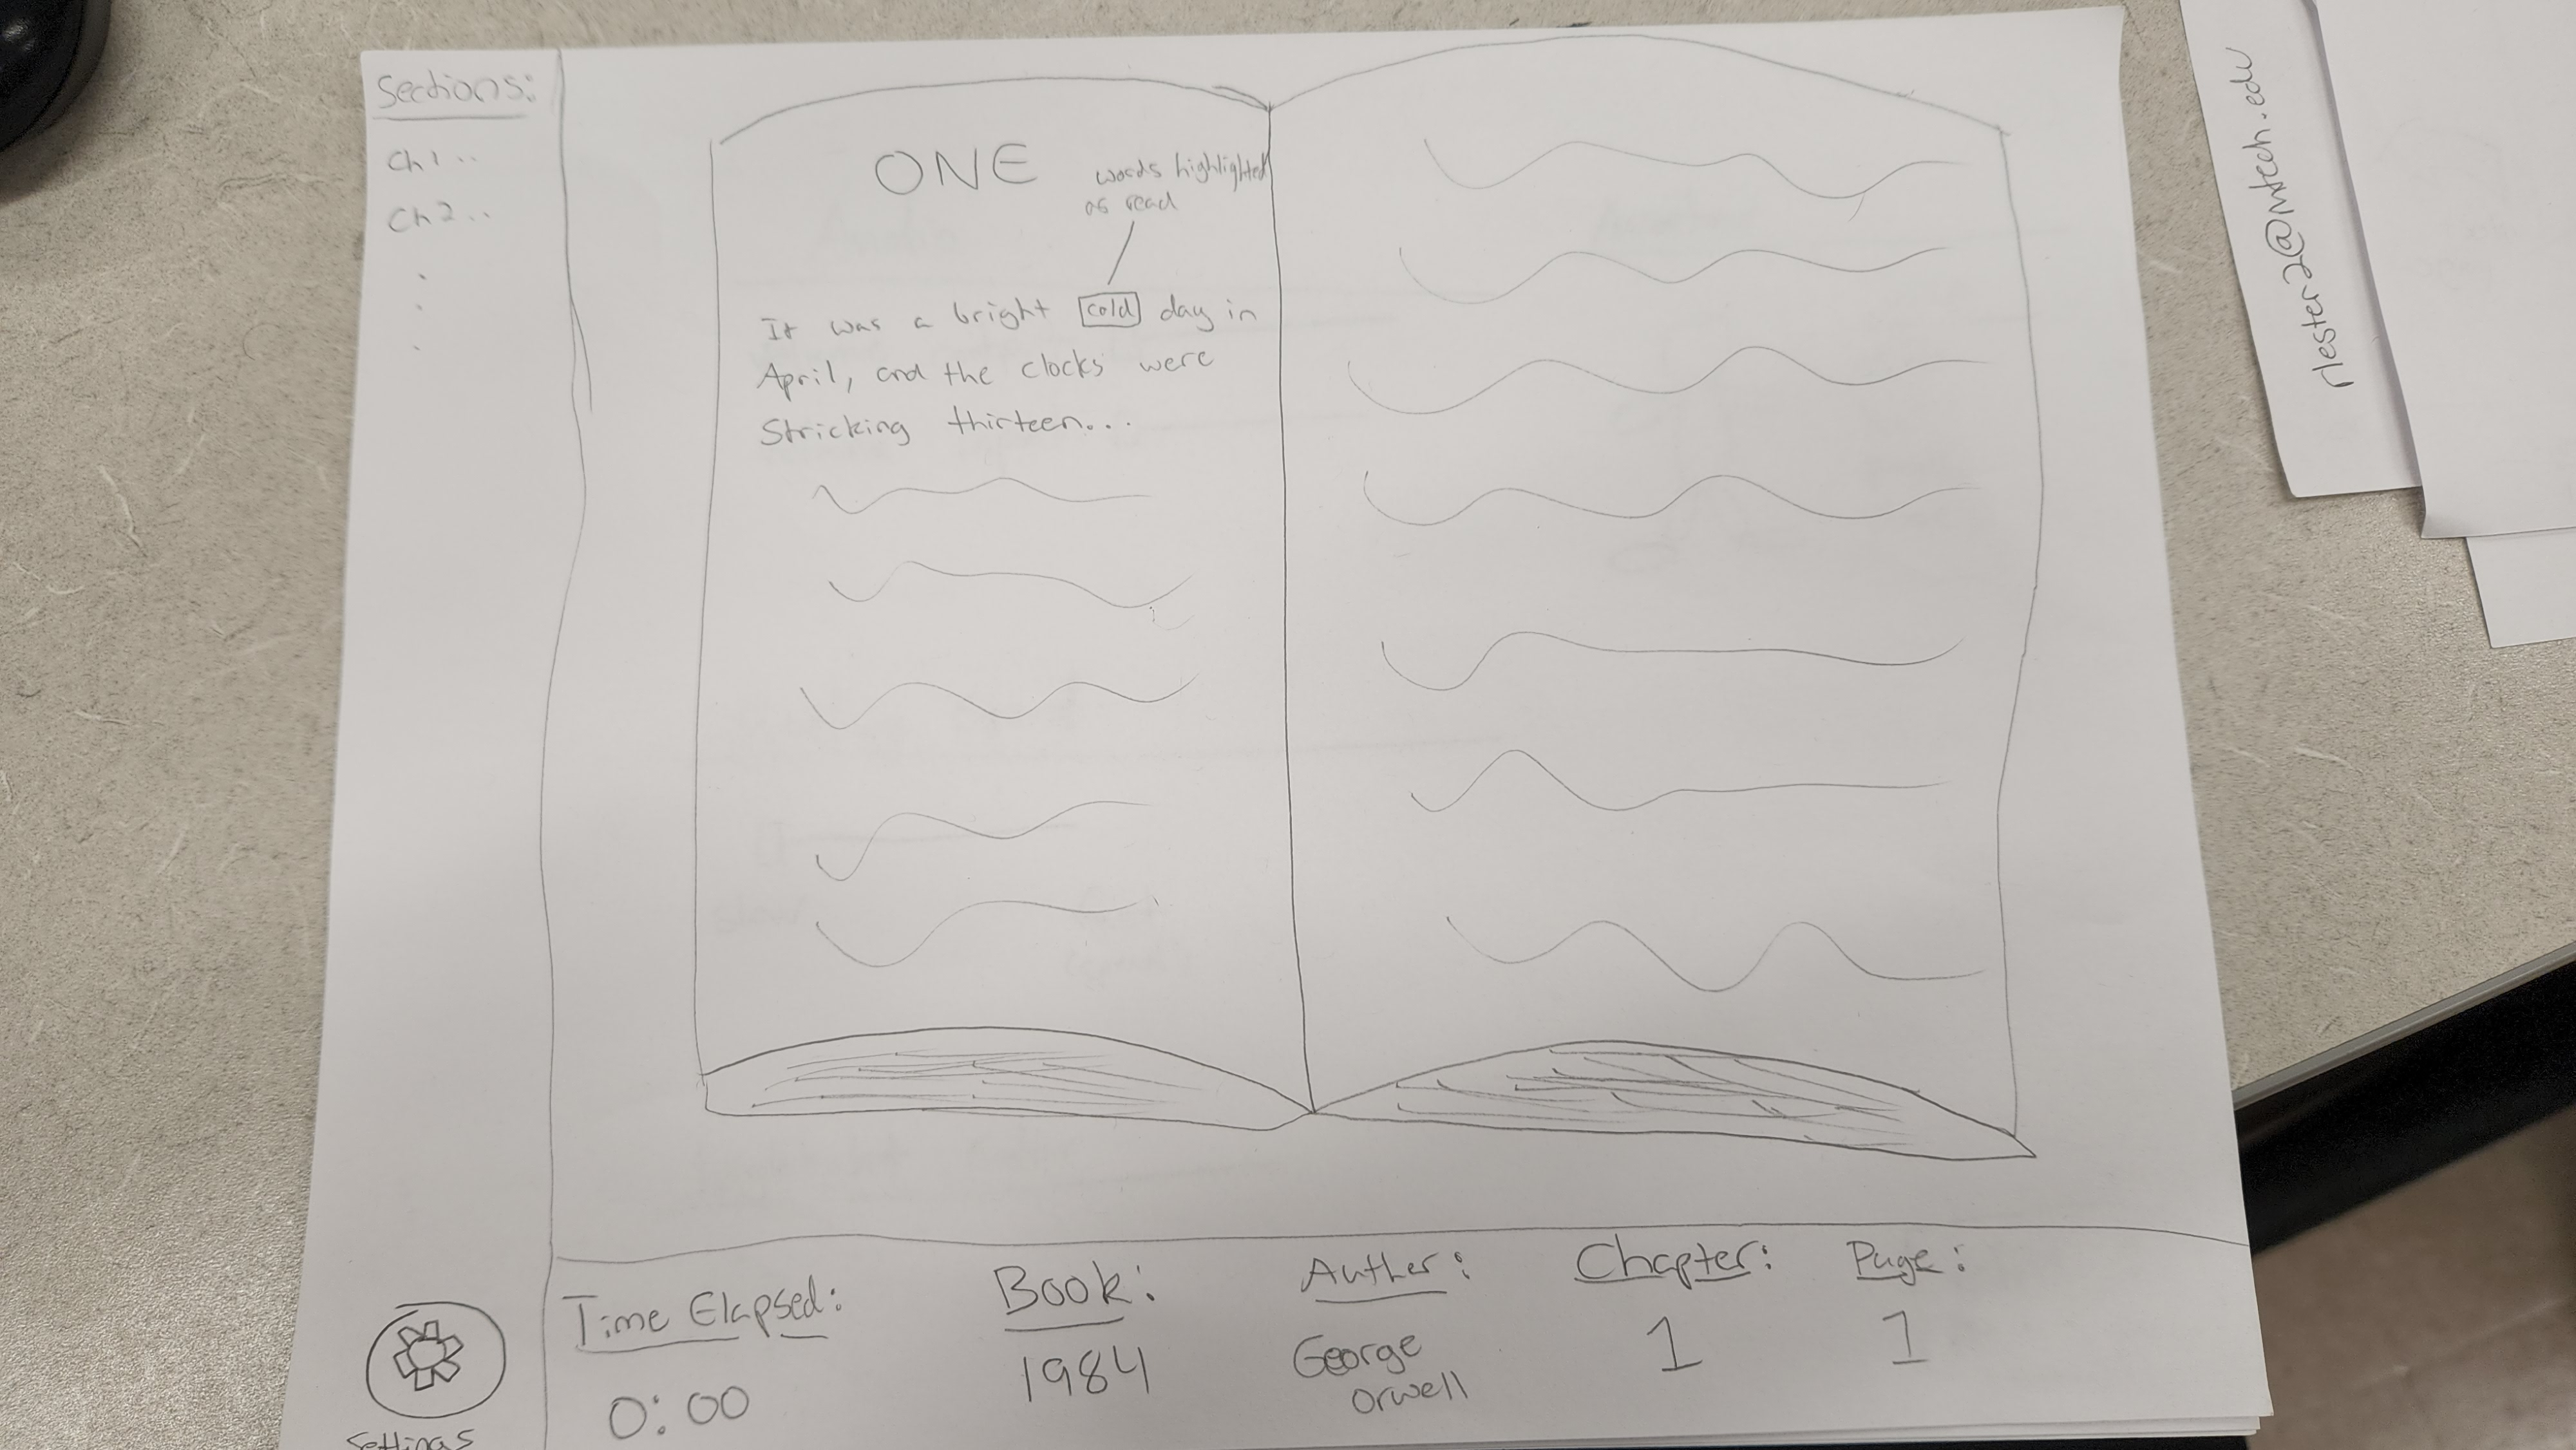 Sections:
Ch 1 ..
Ch 2 ..
ONE
words highlighted
as read
It was a bright cold day in
April, and the clocks were
Stricking thirteen...
Time Elapsed:
0:00
Book:
1984
Auther:
George
Orwell
Chapter:
1
Page:
1
Settings
rlester2@mtech.edu